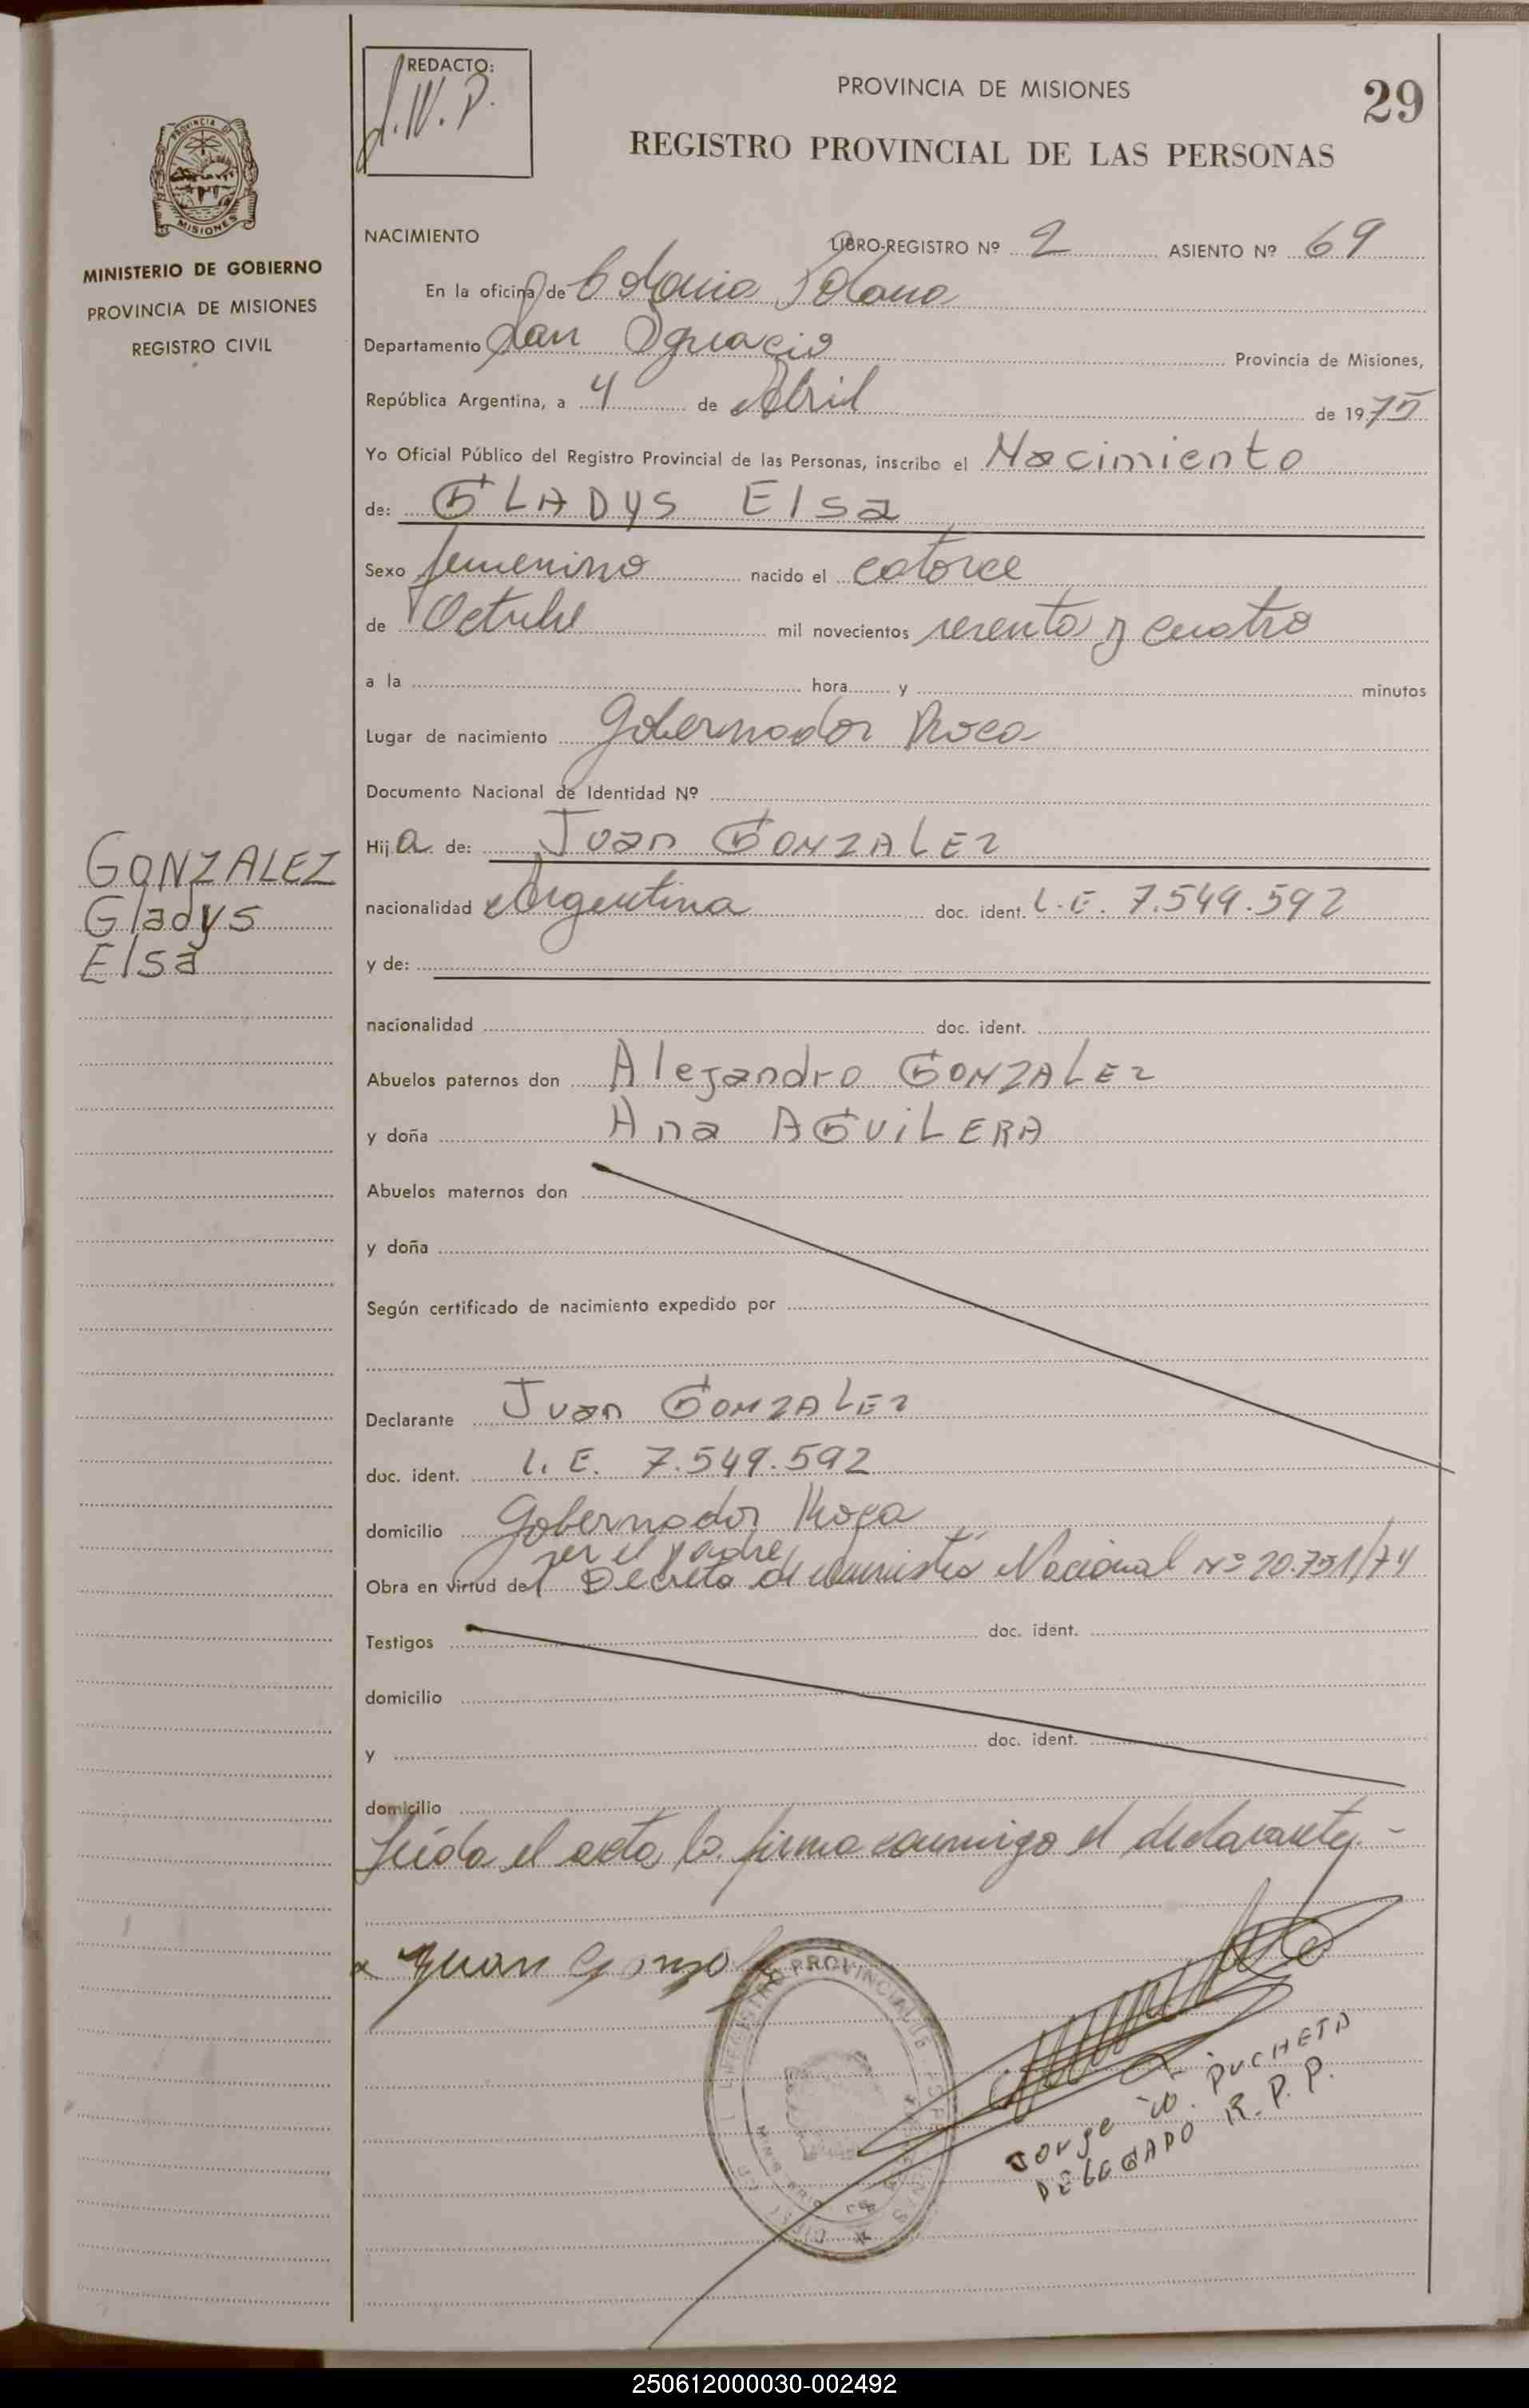 REDACTO:
J.W.P.
PROVINCIA DE MISIONES
29
REGISTRO PROVINCIAL DE LAS PERSONAS
PROVINCIA DE
MISIONES
MINISTERIO DE GOBIERNO
PROVINCIA DE MISIONES
REGISTRO CIVIL
NACIMIENTO LIBRO-REGISTRO Nº 2 ASIENTO Nº 69
En la oficina de Colonia Polana
Departamento San Ignacio Provincia de Misiones,
República Argentina, a 4 de Abril de 1975
Yo Oficial Público del Registro Provincial de las Personas, inscribo el Nacimiento
de: GLADYS Elsa
Sexo femenino nacido el catorce
de Octubre mil novecientos sesenta y cuatro
a la hora y minutos
Lugar de nacimiento Gobernador Roca
Documento Nacional de Identidad Nº
GONZALEZ
Gladys
Elsa
Hija de: Juan GONZALEZ
nacionalidad Argentina doc. ident. L.E. 7.549.592
y de:
nacionalidad doc. ident.
Abuelos paternos don Alejandro GONZALEZ
y doña Ana AGUiLERA
Abuelos maternos don
y doña
Según certificado de nacimiento expedido por
Declarante Juan GONZALEZ
doc. ident. L.E. 7.549.592
domicilio Gobernador Roca
ser el padre
Obra en virtud del Decreto de amnistía Nacional Nº 20.751/74
Testigos doc. ident.
domicilio
y doc. ident.
domicilio
Leída el acta la firma conmigo el declarante.-
x Juan Gonzalez
REGISTRO PROVINCIAL DE
Jorge W. PUCHETA
DELEGADO R.P.P.
250612000030-002492